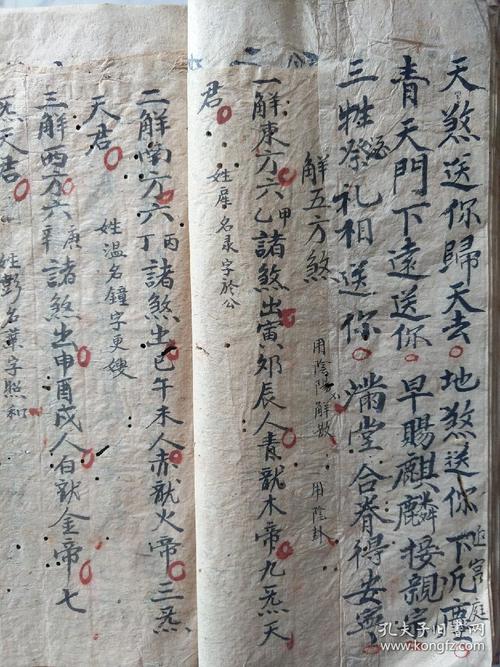 天煞送你歸天去。地煞送你下凡塵
青天門下遠送你。早賜麒麟接親宮
三牲祭礼相送你。滿堂合眷得安寧
解五方煞
用陰陽解散 用陰卦
一解東方六甲乙諸煞出寅卯辰人青龍木帝九炁天
君
二解南方六丙丁諸煞出巳午未人赤龍火帝。三炁
天君
姓溫名鐘字更嫂
三解西方六庚辛諸煞出申酉戌人白龍金帝七
炁天君
孔夫子旧书网
kongfz.com